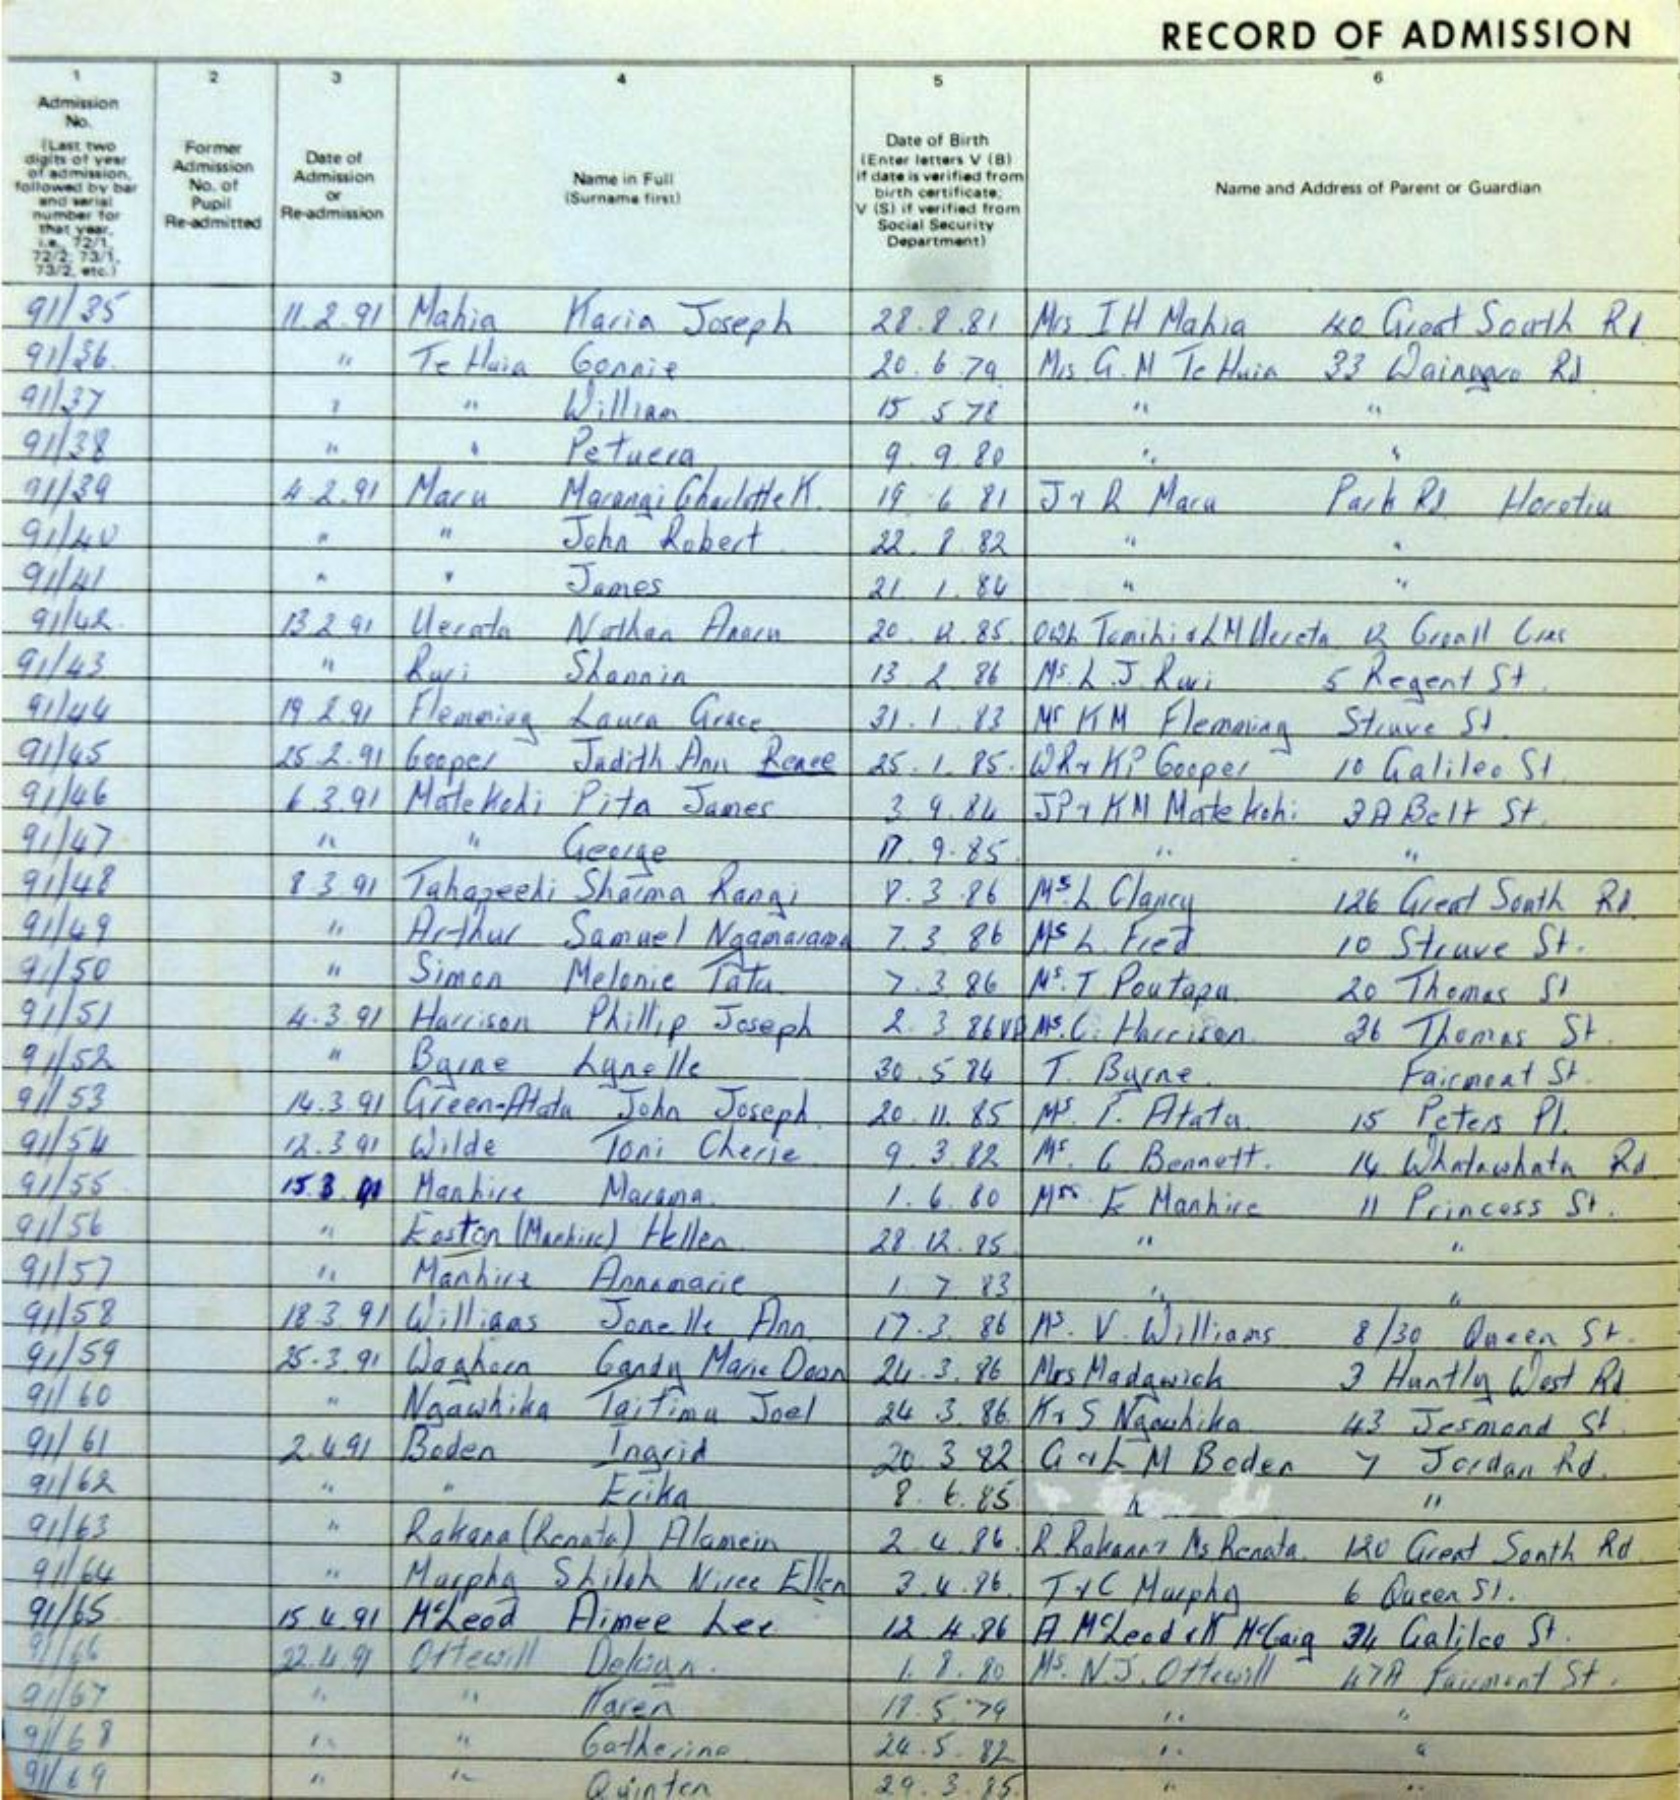 RECORD OF ADMISSION
1 2 3 4 5 6
Admission No. (Last two digits of year of admission, followed by bar and serial number for that year, i.e., 72/1, 72/2; 73/1, 73/2, etc.)
Former Admission No. of Pupil Re-admitted
Date of Admission or Re-admission
Name in Full (Surname first)
Date of Birth (Enter letters V (B) if date is verified from birth certificate; V (S) if verified from Social Security Department)
Name and Address of Parent or Guardian
91/35 11.2.91 Mahia Karia Joseph 28.8.81 Mrs I H Mahia 40 Great South Rd
91/36 " Te Huia Connie 20.6.79 Mrs G.M Te Huia 33 Waingaro Rd
91/37 " " William 15.5.78 " "
91/38 " " Petuera 9.9.80 " "
91/39 4.2.91 Maru Marangi Charlotte K. 19.6.81 J & R Maru Park Rd Horotiu
91/40 " " John Robert 22.8.82 " "
91/41 " " James 21.1.84 " "
91/42 13.2.91 Uerata Nathan 20.12.85 12 Cres
91/43 " Rwi Shannin 13.2.86 Ms. L. J. Rwi 5 Regent St.
91/44 19.2.91 Flemming Laura Grace 31.1.83 Mr K M Flemming Struve St.
91/45 25.2.91 Cooper Judith Ann Renee 25.1.85 WR & KP Cooper 10 Galileo St
91/46 6.3.91 Matekohi Pita James 3.9.84 JP & KM Matekohi 3A Bell St.
91/47 " " George 17.9.85 " "
91/48 8.3.91 Sharma Rangi 8.3.86 Ms. L Clancy 126 Great South Rd.
91/49 " Arthur Samuel Ngamarama 7.3.86 Ms L. Fred 10 Struve St.
91/50 " Simon Melonie Tatu 7.3.86 Ms. T Poutapu 20 Thomas St
91/51 4.3.91 Harrison Phillip Joseph 2.3.86 Ms. C. Harrison 36 Thomas St.
91/52 " Byrne Lynelle 30.5.84 T. Byrne Fairmont St.
91/53 14.3.91 Green-Atata John Joseph 20.11.85 Ms. P. Atata 15 Peters Pl.
91/54 12.3.91 Wilde Toni Cherie 9.3.82 Ms. C Bennett. 14 Whatawhata Rd
91/55 15.3.91 Manhire Marama 1.6.80 Mrs E Manhire 11 Princess St.
91/56 " Easton (Manhire) Hellen 28.12.85 " "
91/57 " Manhire Annamarie 1.7.83 " "
91/58 18.3.91 Williams Jonelle Ann 17.3.86 Ms. V. Williams 8/30 Queen St.
91/59 25.3.91 Waghorn Candy Marie Dawn 24.3.86 Mrs Madgwick 3 Huntly West Rd
91/60 " Ngawhika Taitimu Joel 24.3.86 K & S Ngawhika 43 Jesmond St
91/61 2.4.91 Boden Ingrid 20.3.82 G & L M Boden 7 Jordan Rd.
91/62 " " Erika 8.6.85 " "
91/63 " Rakana (Renata) Alamein 2.4.86 R. Rakana & Ms Renata 120 Great South Rd
91/64 " Murphy Shiloh Niree Ellen 3.4.86 T & C Murphy 6 Queen St.
91/65 15.4.91 McLeod Aimee Lee 12.4.86 A McLeod & K McCaig 34 Galileo St.
91/66 22.4.91 Ottewill 1.8.80 Ms. N.J. Ottewill 47A Fairmont St.
91/67 " " Karen 18.5.79 " "
91/68 " " Catherine 24.5.82 " "
91/69 " " Quinten 29.3.85 " "